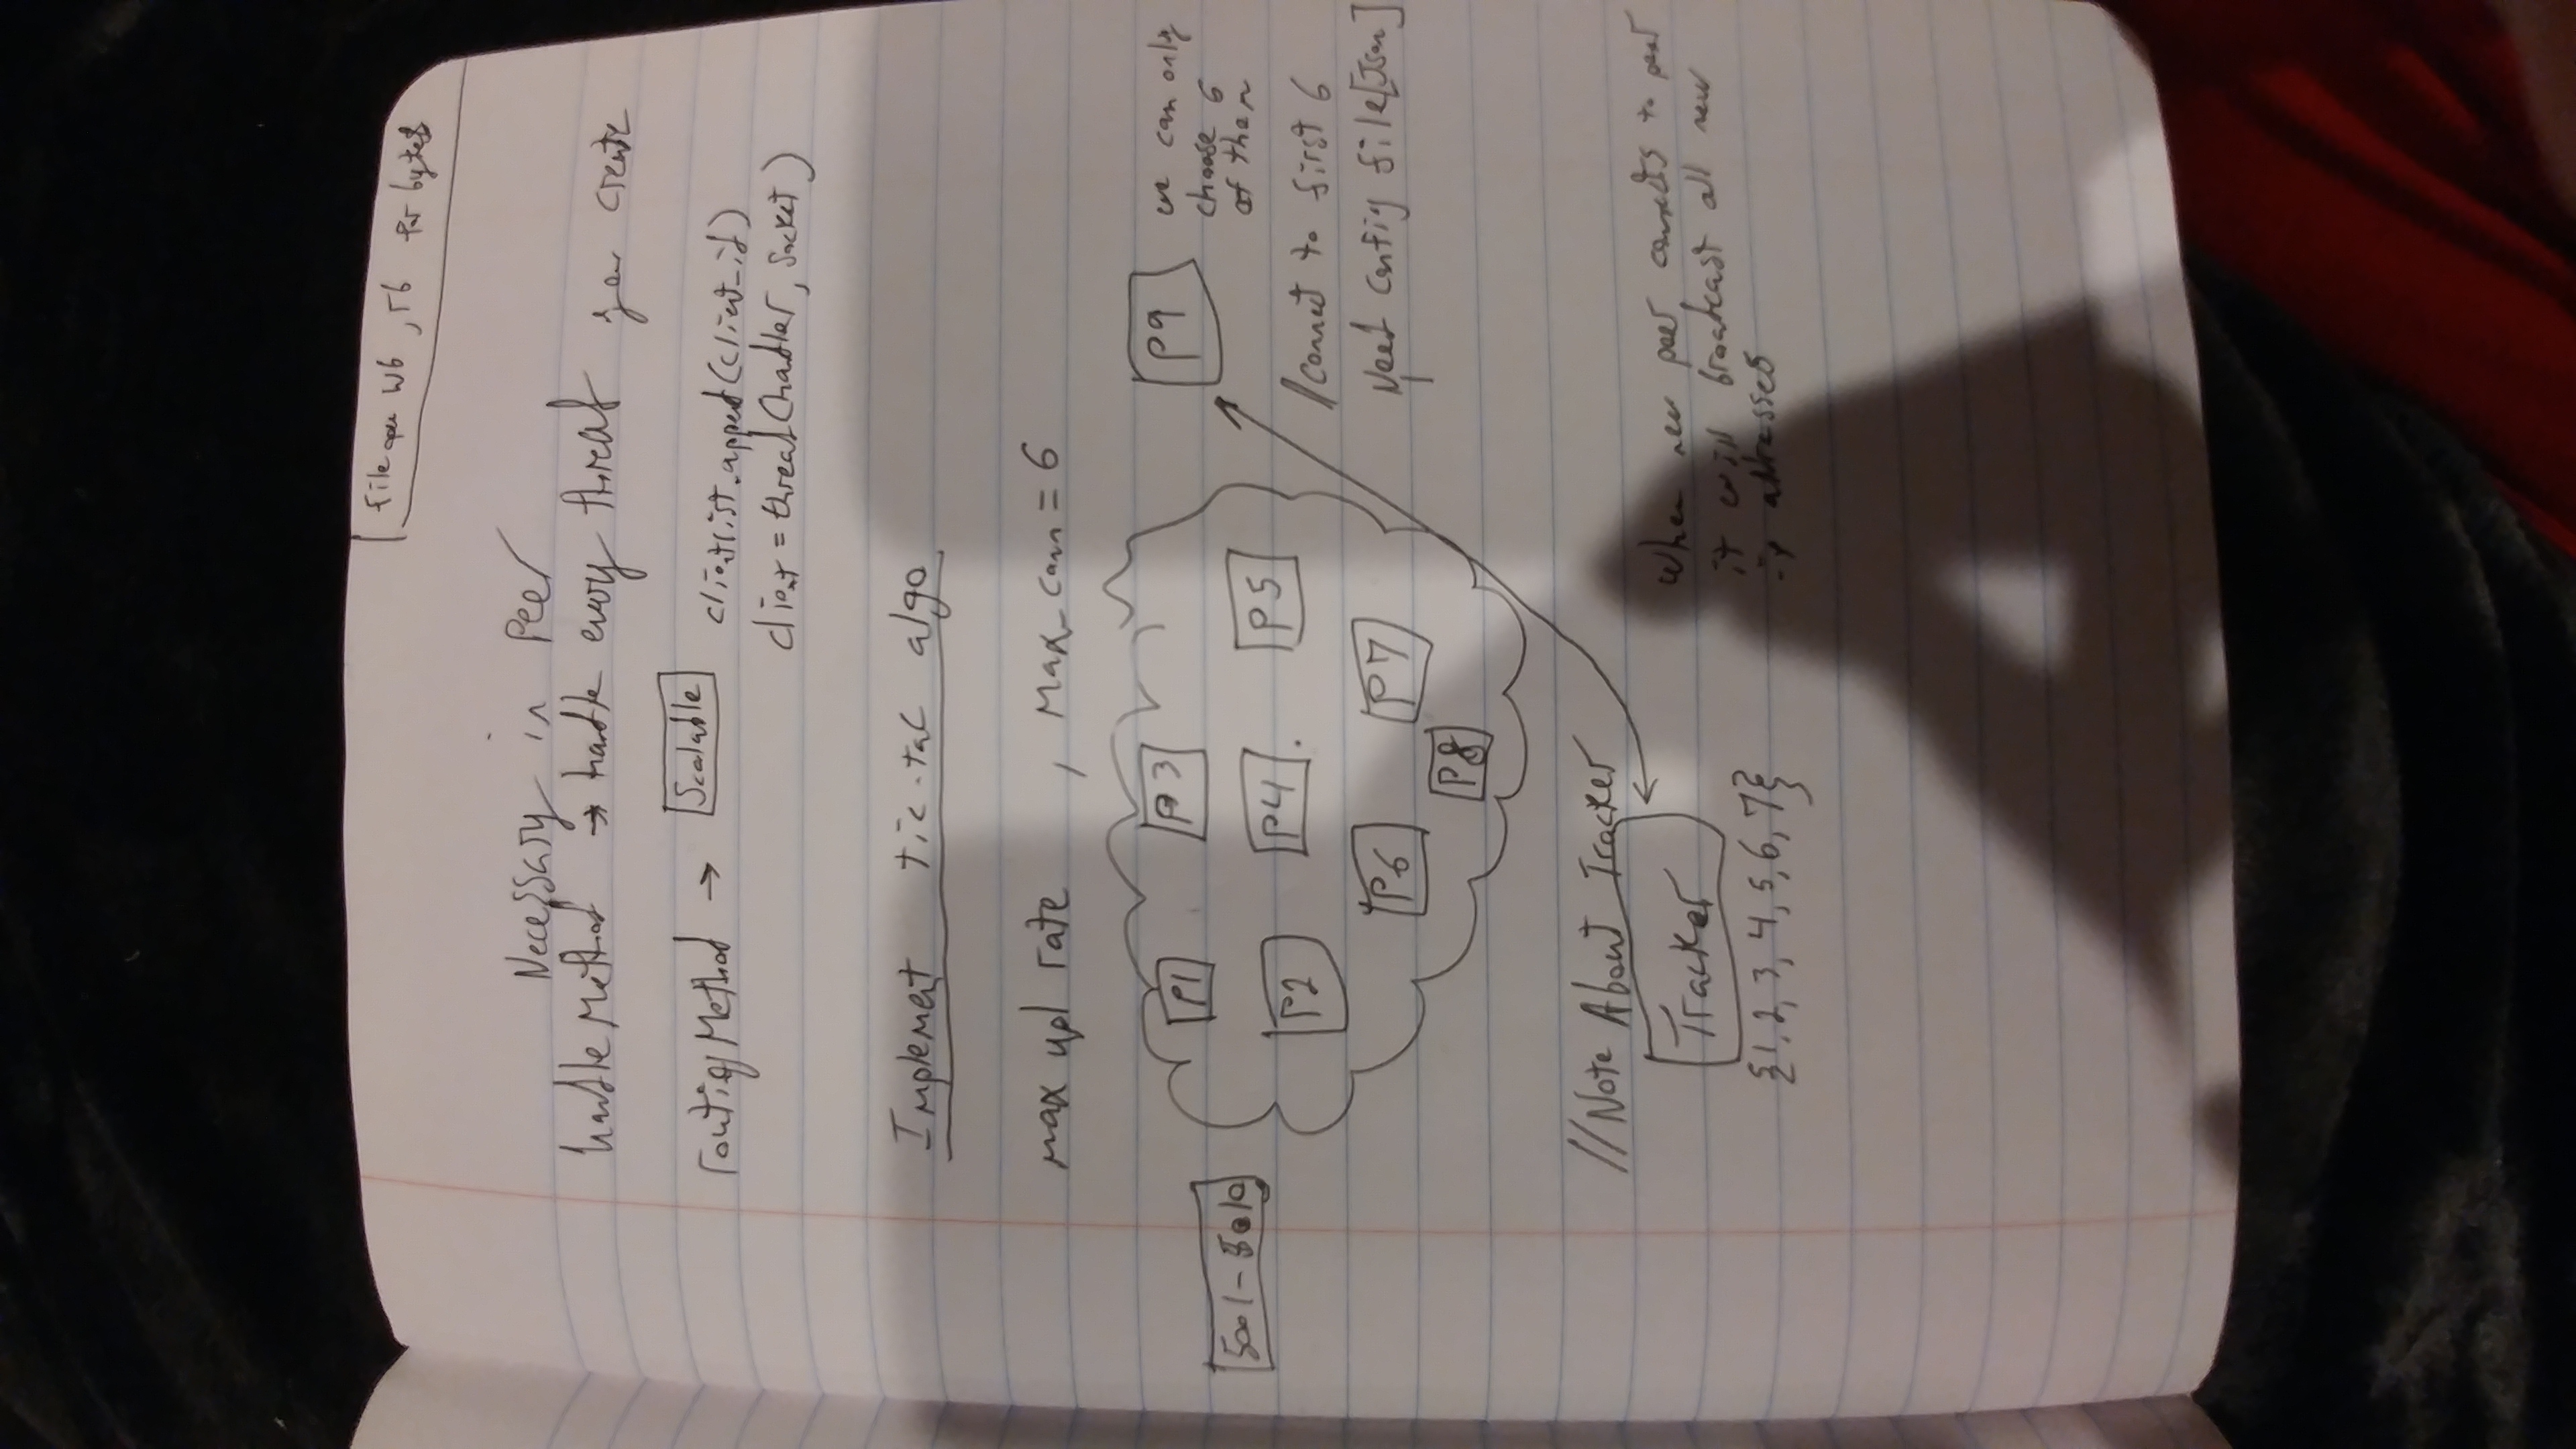 file open wb, rb for bytes
Necessary in Peer
handle Method → handle every thread you create
routing Method → Scalable
clientlist.append(client_id)
client = thread(handler, socket)
Implement tic-tac algo
max upl rate, Max_conn = 6
P1 P3 P9
we can only
choose 6
of them
5001-5010
P2 P4 P5
/Connect to first 6
P6 P7
Need Config file [Json]
P8
//Note About Tracker
Tracker
{1, 2, 3, 4, 5, 6, 7}
When new peer connects to peer
it will broadcast all new
ip addresses